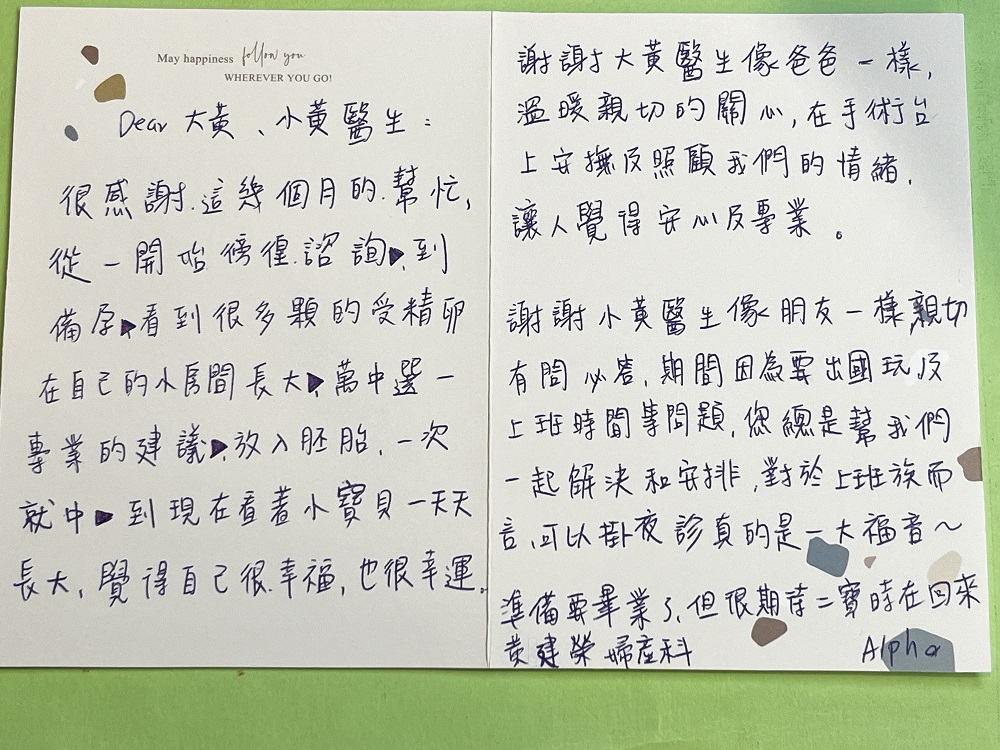 May happiness follow you
WHEREVER YOU GO!
Dear 大黃、小黃醫生：
很感謝這幾個月的幫忙,
從一開始徬徨諮詢▶到
備孕▶看到很多顆的受精卵
在自己的小房間長大▶萬中選一
專業的建議▶放入胚胎,一次
就中▶到現在看著小寶貝一天天
長大,覺得自己很幸福,也很幸運。
謝謝大黃醫生像爸爸一樣,
溫暖親切的關心,在手術台
上安撫及照顧我們的情緒,
讓人覺得安心及專業。
謝謝小黃醫生像朋友一樣,親切
有問必答,期間因為要出國玩及
上班時間等問題,您總是幫我們
一起解決和安排,對於上班族而
言,可以掛夜診真的是一大福音～
準備要畢業了,但很期待二寶時在回來
黃建榮婦產科 Alpha